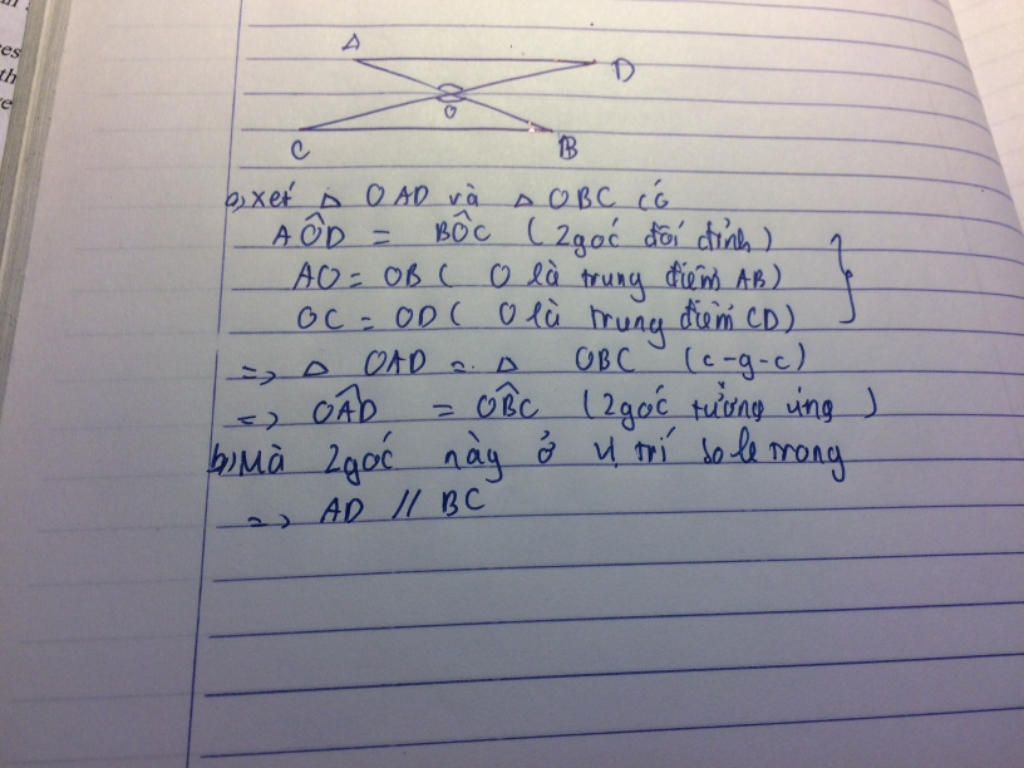 es
th
A
D
O
C
B
a, xét Δ OAD và Δ OBC có
AÔD = BÔC (2 góc đối đỉnh)
AO = OB ( O là trung điểm AB)
OC = OD ( O là trung điểm CD)
=> Δ OAD = Δ OBC (c-g-c)
=> OÂD = OB̂C (2 góc tưởng ứng)
b, Mà 2 góc này ở vị trí so le trong
=> AD // BC